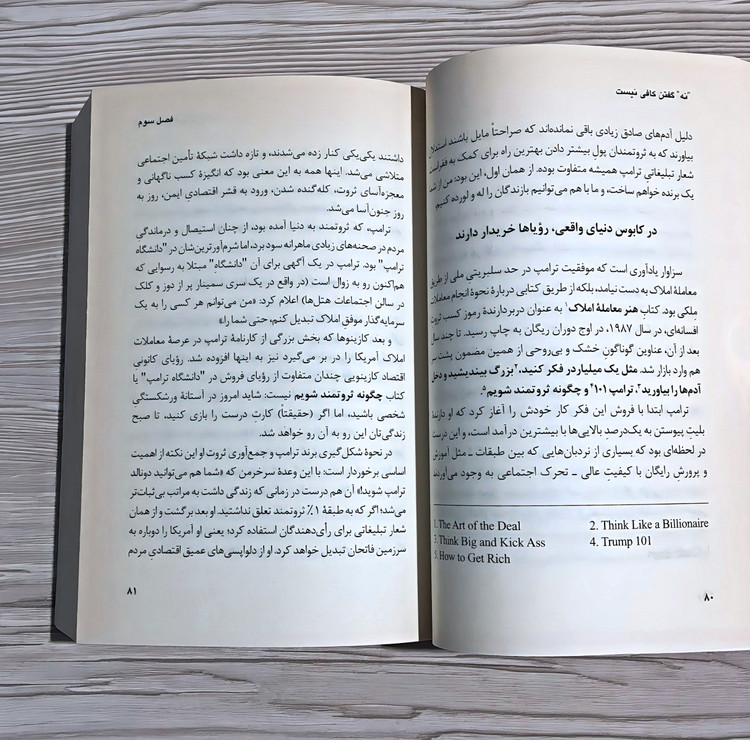 "نه" گفتن کافی نیست
دلیل آدم‌های صادق زیادی باقی نمانده‌اند که صراحتاً مایل باشند استدلال
بیاورند که به ثروتمندان پولِ بیشتر دادن بهترین راه برای کمک به فقراست
شعار تبلیغاتیِ ترامپ همیشه متفاوت بوده. از همان اول، این بود: من از شما
یک برنده خواهم ساخت، و ما با هم می‌توانیم بازندگان را له و لورده کنیم
در کابوس دنیای واقعی، رؤیاها خریدار دارند
سزاوار یادآوری است که موفقیت ترامپ در حد سلبریتی ملی از طریق
معاملهٔ املاک به دست نیامد، بلکه از طریق کتابی دربارهٔ نحوهٔ انجام معاملات
مِلکی بود. کتاب هنر معاملهٔ املاک۱ به عنوان دربردارندهٔ رموز کسب ثروت
افسانه‌ای، در سال ۱۹۸۷، در اوج دوران ریگان به چاپ رسید. تا چند سال
بعد از آن، عناوین گوناگونِ خشک و بی‌روحی از همین مضمون پشت سر
هم وارد بازار شد. مثل یک میلیاردر فکر کنید،۲ بزرگ بیندیشید و دخل
آدم‌ها را بیاورید،۳ ترامپ ۱۰۱۴ و چگونه ثروتمند شویم۵.
ترامپ ابتدا با فروش این فکر کار خودش را آغاز کرد که او دارندهٔ
بلیتِ پیوستن به یک‌درصدِ بالایی‌ها با بیشترین درآمد است، و این درست
در لحظه‌ای بود که بسیاری از نردبان‌هایی که بین طبقات ـ مثل آموزش
و پرورشِ رایگان با کیفیتِ عالی ـ تحرک اجتماعی به وجود می‌آوردند
1. The Art of the Deal
2. Think Like a Billionaire
3. Think Big and Kick Ass
4. Trump 101
5. How to Get Rich
۸۰
فصل سوم
داشتند یکی‌یکی کنار زده می‌شدند، و تازه داشت شبکهٔ تأمین اجتماعی
متلاشی می‌شد. اینها همه به این معنی بود که انگیزهٔ کسب ناگهانی و
معجزه‌آسای ثروت، کله‌گنده شدن، ورود به قشر اقتصادیِ ایمن، روز به
روز جنون‌آسا می‌شد.
ترامپ، که ثروتمند به دنیا آمده بود، از چنان استیصال و درماندگی
مردم در صحنه‌های زیادی ماهرانه سود برد، اما شرم‌آورترین‌شان در "دانشگاه
ترامپ" بود. ترامپ در یک آگهی برای آن "دانشگاهِ" مبتلا به رسوایی که
هم‌اکنون رو به زوال است (در واقع در یک سری سمینار پر از دوز و کلک
در سالن اجتماعات هتل‌ها) اعلام کرد: «من می‌توانم هر کسی را به یک
سرمایه‌گذار موفقِ املاک تبدیل کنم، حتی شما را.»
و بعد کازینوها که بخش بزرگی از کارنامهٔ ترامپ در عرصهٔ معاملات
املاک آمریکا را در بر می‌گیرد نیز به اینها افزوده شد. رؤیای کانونیِ
اقتصاد کازینویی چندان متفاوت از رؤیای فروش در "دانشگاه ترامپ" یا
کتاب چگونه ثروتمند شویم نیست: شاید امروز در آستانهٔ ورشکستگیِ
شخصی باشید، اما اگر (حقیقتاً) کارتِ درست را بازی کنید، تا صبح
زندگی‌تان این رو به آن رو خواهد شد.
در نحوهٔ شکل‌گیری برند ترامپ و جمع‌آوری ثروت او این نکته از اهمیت
اساسی برخوردار است: با این وعدهٔ سرخرمن که «شما هم می‌توانید دونالد
ترامپ شوید!» آن هم درست در زمانی که زندگی داشت به مراتب بی‌ثبات‌تر
می‌شد؛ اگر که به طبقهٔ ۱٪ ثروتمند تعلق نداشتید. او بعد برگشت و از همان
شعار تبلیغاتی برای رأی‌دهندگان استفاده کرد؛ یعنی او آمریکا را دوباره به
سرزمین فاتحان تبدیل خواهد کرد. او از دلواپسی‌های عمیق اقتصادیِ مردم
۸۱